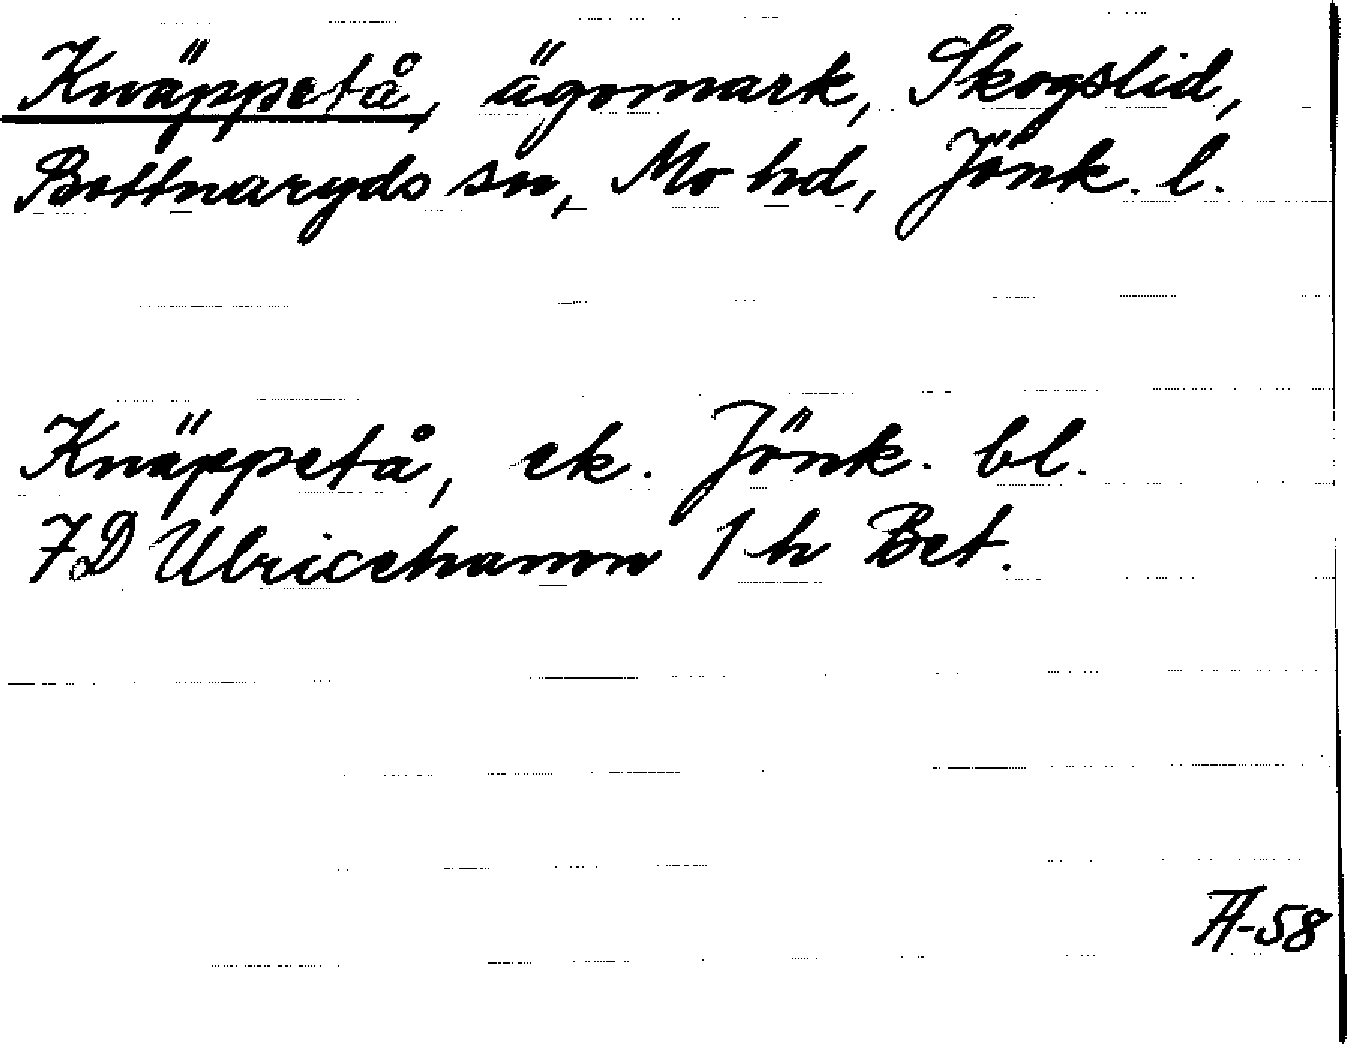 Knäppetå, ägomark, Skogslid,
Bottnaryds sn, Mo hd, Jönk. l.
Knäppetå, ek. Jönk. bl.
7D Ulricehamn 1 h Bet.
A-58